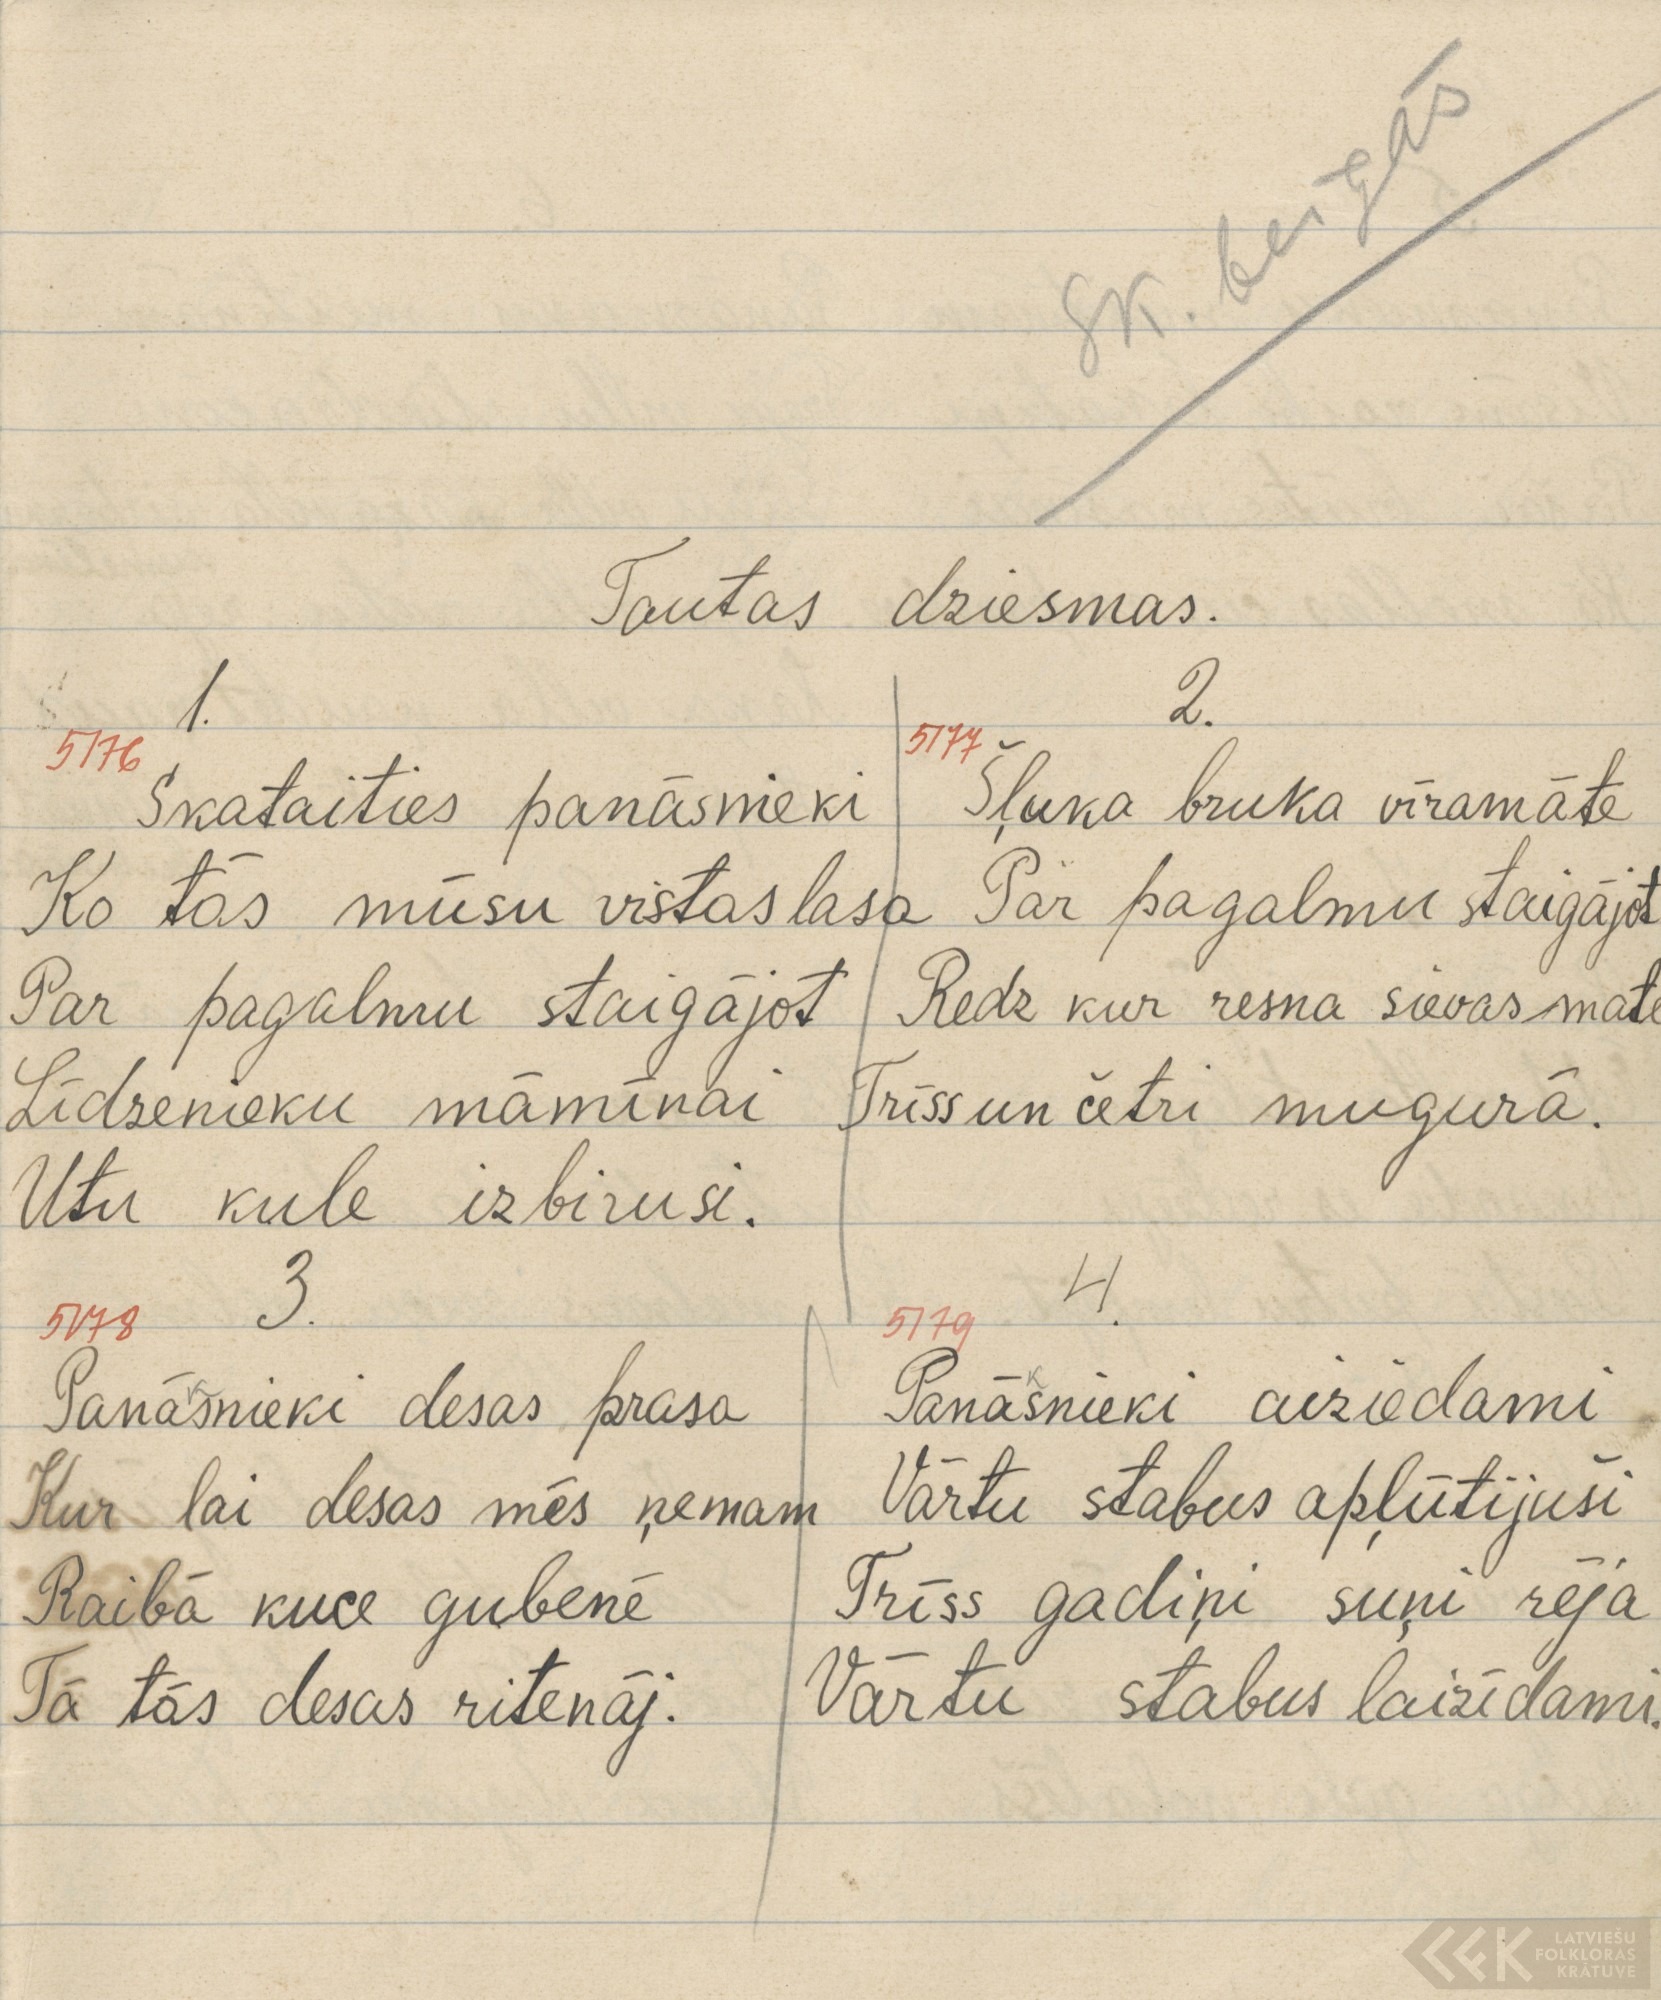 Sk. beigās
Tautas dziesmas.
1.
5176
Skataities panāsnieki
Ko tās mūsu vistas lasa
Par pagalmu staigājot
Līdzenieku māmīnai
Utu kule izbirusi.
2.
5177
Šļuka bruka vīramāte
Pār pagalmu staigājot
Redz kur resna sievas māte
Trīss un četri mugurā.
3.
5178
Panākšnieki desas prasa
Kur lai desas mēs ņemam
Raibā kuce gubenē
Tā tās desas ritenāj.
4.
5179
Panākšnieki aiziedami
Vārtu stabus apļūtījuši
Trīss gadiņi suņi rēja
Vārtu stabus laizīdami.
LATVIEŠU
FOLKLORAS
KRĀTUVE